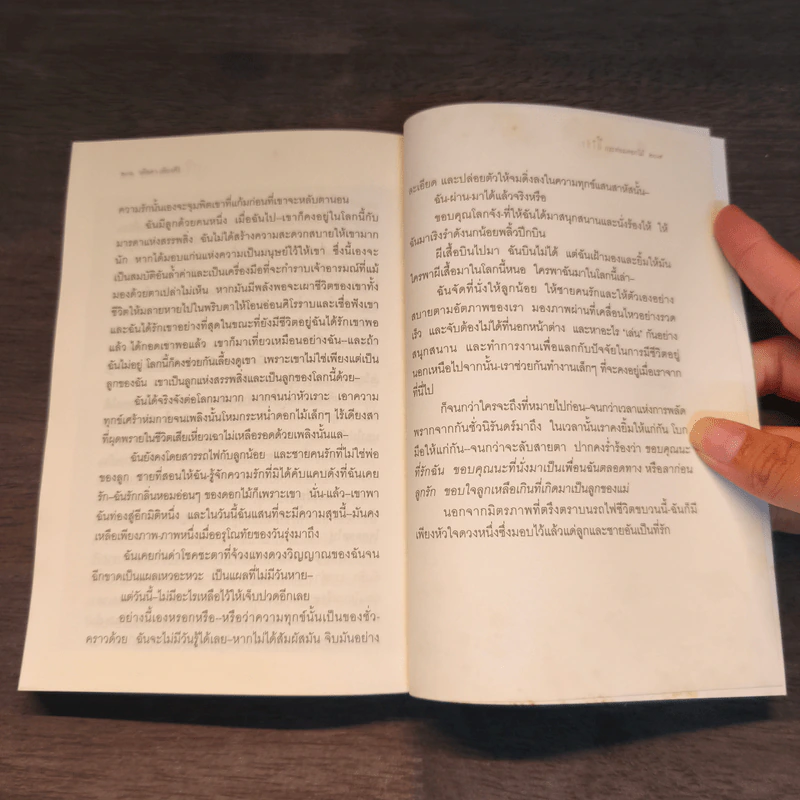 ความรักนั้นเองจะจุมพิตเขาที่แก้มก่อนที่เขาจะหลับตานอน
ฉันมีลูกด้วยคนหนึ่ง เมื่อฉันไป–เขาก็คงอยู่ในโลกนี้กับ
มารดาแห่งสรรพสิ่ง ฉันไม่ได้สร้างความสะดวกสบายให้เขามาก
นัก หากได้มอบแก่นแห่งความเป็นมนุษย์ไว้ให้เขา ซึ่งนี้เองจะ
เป็นสมบัติอันล้ำค่าและเป็นเครื่องมือที่จะกำราบเจ้าอารมณ์ที่แม้
มองด้วยตาเปล่าไม่เห็น หากมันมีพลังพอจะเผาชีวิตของเขาทั้ง
ชีวิตให้มลายหายไปในพริบตาให้โอนอ่อนศิโรราบและเชื่อฟังเขา
และฉันได้รักเขาอย่างที่สุดในขณะที่ยังมีชีวิตอยู่ฉันได้รักเขาพอ
แล้ว ได้กอดเขาพอแล้ว เขาก็มาเที่ยวเหมือนอย่างฉัน–และถ้า
ฉันไม่อยู่ โลกนี้ก็คงช่วยกันเลี้ยงดูเขา เพราะเขาไม่ใช่เพียงแต่เป็น
ลูกของฉัน เขาเป็นลูกแห่งสรรพสิ่งและเป็นลูกของโลกนี้ด้วย–
ฉันได้จริงจังต่อโลกมามาก มากจนน่าหัวเราะ เอาความ
ทุกข์เศร้าห่มกายจนเพลิงนั้นโหมกระหน่ำดอกไม้เล็กๆ ไร้เดียงสา
ที่ผุดพรายในชีวิตเสียเหี่ยวเฉาไม่เหลือรอดด้วยเพลิงนั้นแล–
ฉันยังคงโดยสารรถไฟกับลูกน้อย และชายคนรักที่ไม่ใช่พ่อ
ของลูก ชายที่สอนให้ฉัน-รู้จักความรักที่มิได้คับแคบดังที่ฉันเคย
รัก–ฉันรักกลิ่นหอมอ่อนๆ ของดอกไม้ก็เพราะเขา นั่น-แล้ว–เขาพา
ฉันท่องสู่อีกมิติหนึ่ง และในวันนี้ฉันแสนที่จะมีความสุขนี้–มันคง
เหลือเพียงภาพ-ภาพหนึ่งเมื่ออรุโณทัยของวันรุ่งมาถึง
ฉันเคยก่นด่าโชคชะตาที่จ้วงแทงดวงวิญญาณของฉันจน
ฉีกขาดเป็นแผลเหวอะหวะ เป็นแผลที่ไม่มีวันหาย–
แต่วันนี้–ไม่มีอะไรเหลือไว้ให้เจ็บปวดอีกเลย
อย่างนี้เองหรอกหรือ–หรือว่าความทุกข์นั้นเป็นของชั่ว-
คราวด้วย ฉันจะไม่มีวันรู้ได้เลย–หากไม่ได้สัมผัสมัน จิบมันอย่าง
ละเอียด และปล่อยตัวให้จมดิ่งลงในความทุกข์แสนสาหัสนั้น–
ฉัน-ผ่าน-มาได้แล้วจริงหรือ
ขอบคุณโลกจัง-ที่ให้ฉันได้มาสนุกสนานและนั่งร้องไห้ ให้
ฉันมาเริงร่าดังนกน้อยพลิ้วปีกบิน
ผีเสื้อบินไปมา ฉันบินไม่ได้ แต่ฉันเฝ้ามองและยิ้มให้มัน
ใครพาผีเสื้อมาในโลกนี้หนอ ใครพาฉันมาในโลกนี้เล่า–
ฉันจัดที่นั่งให้ลูกน้อย ให้ชายคนรักและให้ตัวเองอย่าง
สบายตามอัตภาพของเรา มองภาพผ่านที่เคลื่อนไหวอย่างรวด
เร็ว และจับต้องไม่ได้ที่นอกหน้าต่าง และหาอะไร "เล่น" กันอย่าง
สนุกสนาน และทำการงานเพื่อแลกกับปัจจัยในการมีชีวิตอยู่
นอกเหนือไปจากนั้น-เราช่วยกันทำงานเล็กๆ ที่จะคงอยู่เมื่อเราจาก
ที่นี่ไป
ก็จนกว่าใครจะถึงที่หมายไปก่อน–จนกว่าเวลาแห่งการพลัด
พรากจากกันชั่วนิรันดร์มาถึง ในเวลานั้นเราคงยิ้มให้แก่กัน โบก
มือให้แก่กัน–จนกว่าจะลับสายตา ปากคงร่ำร้องว่า ขอบคุณนะ
ที่รักฉัน ขอบคุณนะที่นั่งมาเป็นเพื่อนฉันตลอดทาง หรือลาก่อน
ลูกรัก ขอบใจลูกเหลือเกินที่เกิดมาเป็นลูกของแม่
นอกจากมิตรภาพที่ตรึงตราบนรถไฟชีวิตขบวนนี้-ฉันก็มี
เพียงหัวใจดวงหนึ่งซึ่งมอบไว้แล้วแด่ลูกและชายอันเป็นที่รัก